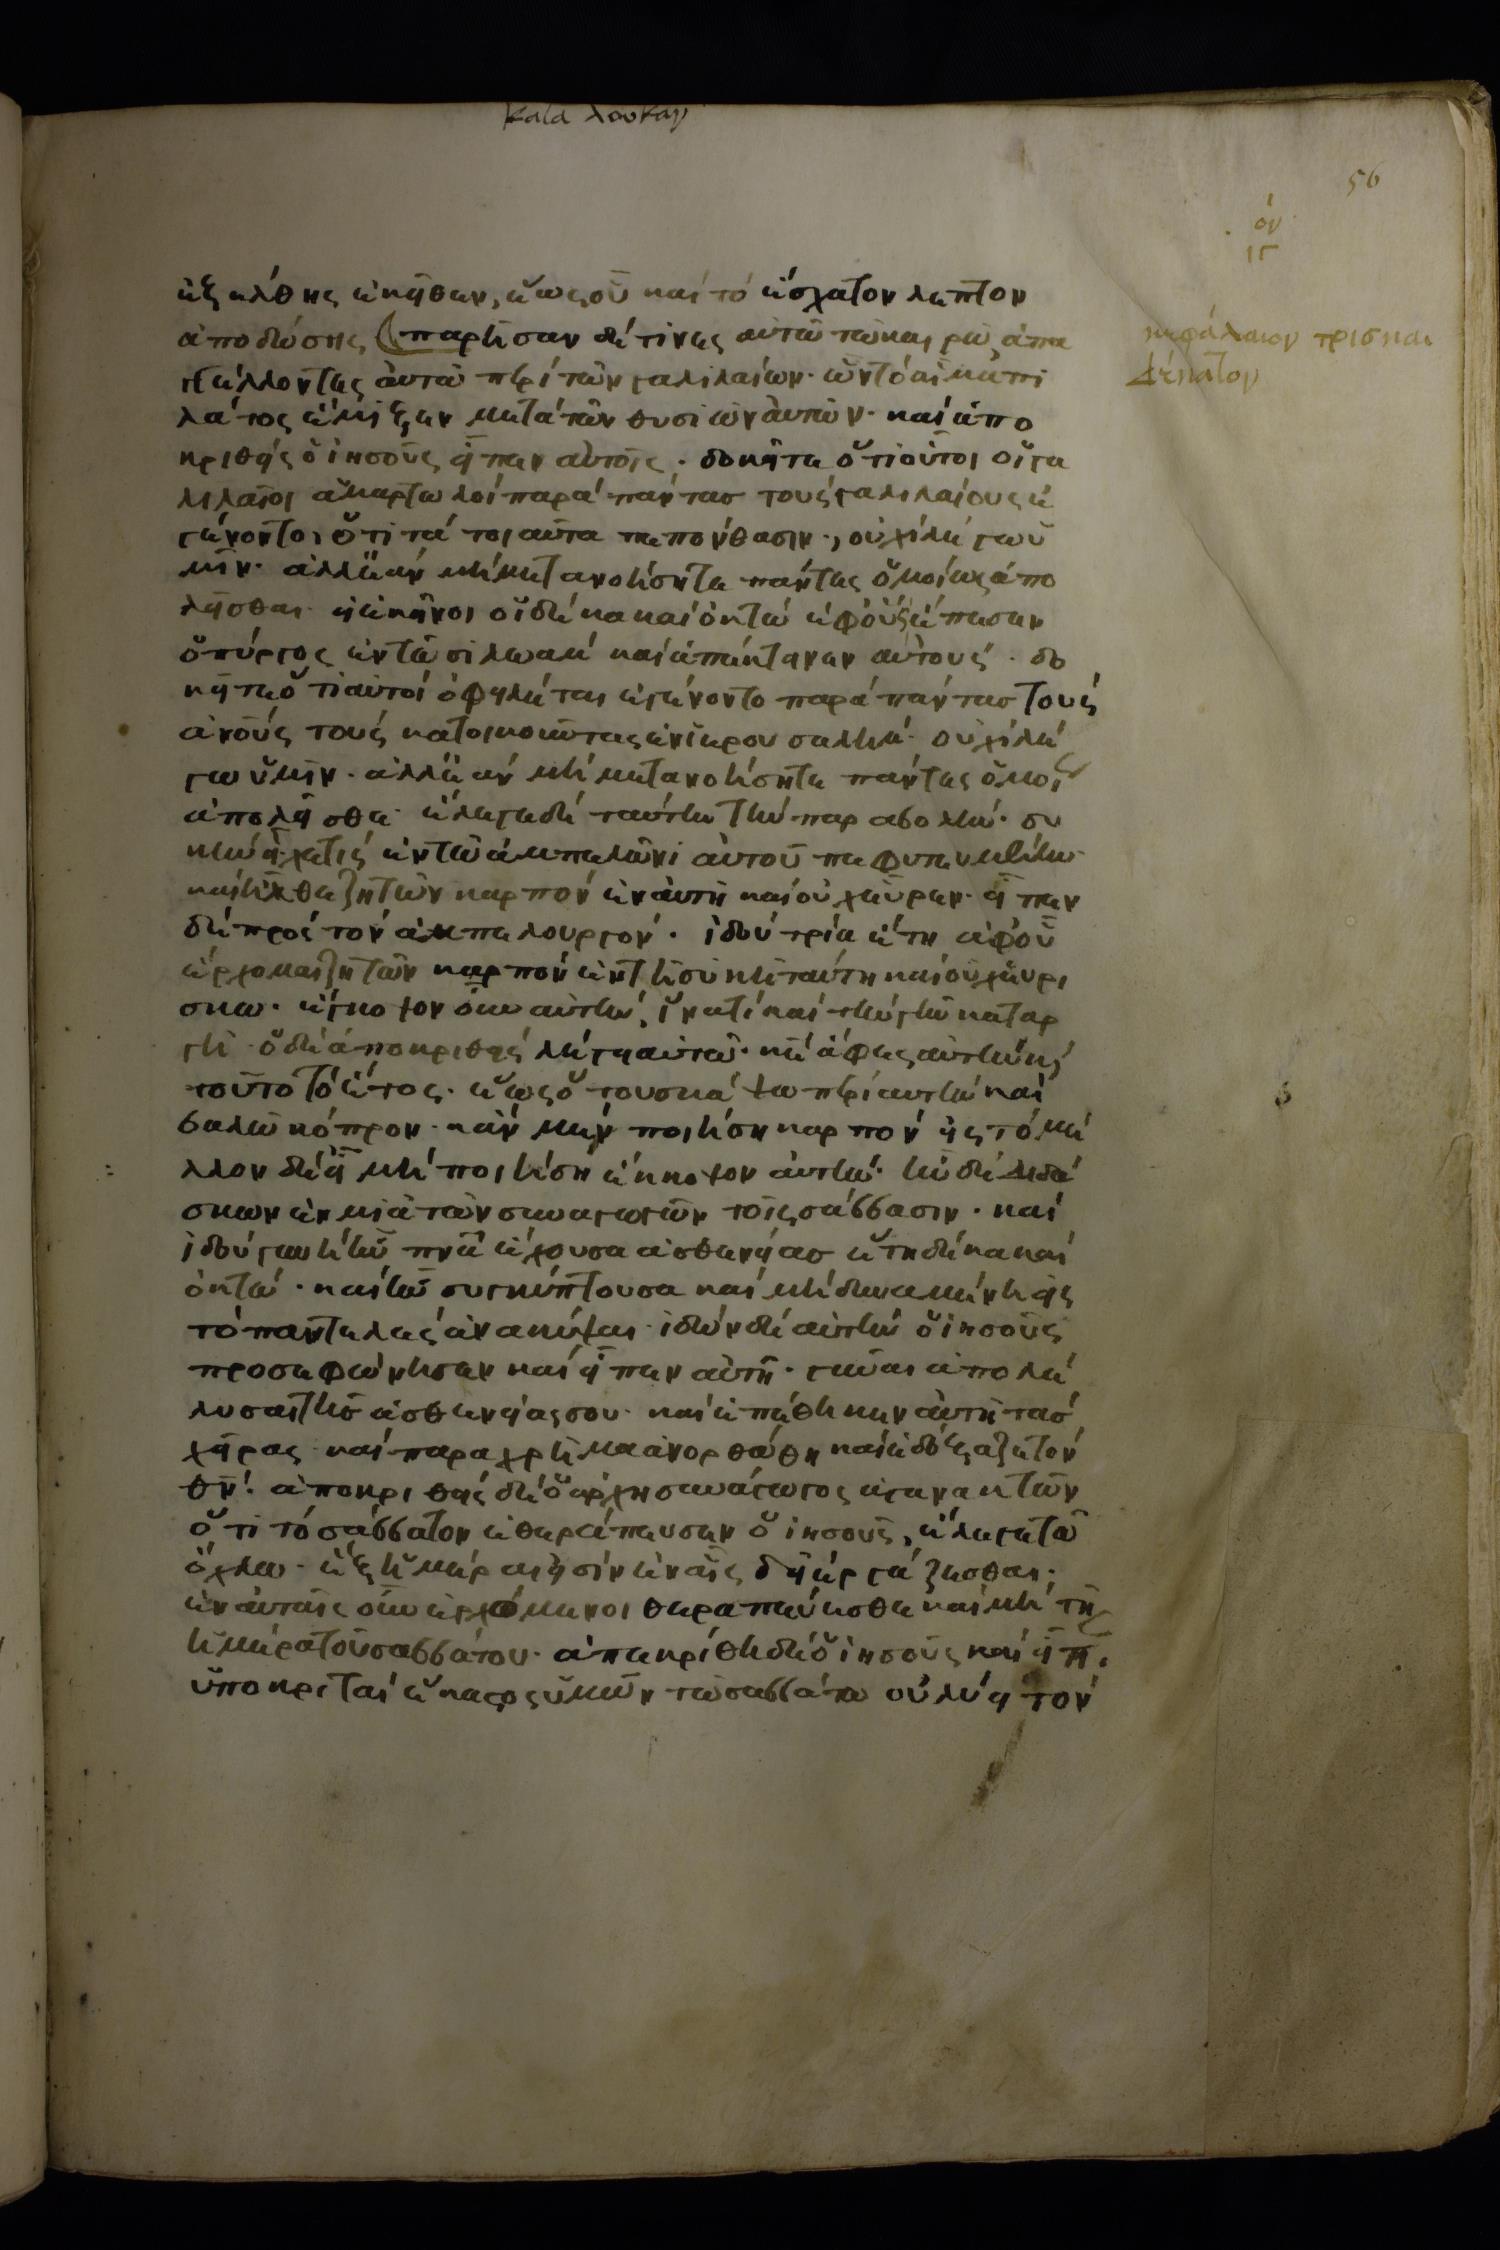 κατα λουκαν
56
όν
ιγ
ἐξέλθης ἐκεῖθεν, ἕως οὗ καί τό ἔσχατον λεπτον
ἀποδώσης παρῆσαν δέ τινες αὐτῶ τῶ καιρῶ, ἀπα
γγέλλοντες ἀυτῶ περί τῶν γαλιλαίων. ὧν τό αἷμα πι
λάτος ἔμιξεν μετά τῶν θυσιῶν ἀυτῶν. καί ἀπο
κριθείς ὁ ἰησοῦς εἶπεν αὐτοῖς. δοκεῖτε ὅτι οὗτοι οἵ γα
λιλαῖοι ἁμαρτωλοί παρά πάντασ τούς γαλιλαίους ἐ
γένοντο, ὅτι τά τοιαῦτα πεπόνθασιν., οὐχί λέγω ὑ
μῖν. ἀλλ' ἐάν μή μετανοήσητε πάντες ὁμοίως ἀπο
λεῖσθαι. ἤ ἐκεῖνοι οἵ δέκα καί ὀκτώ ἐφ' οὕς ἔπεσεν
ὁ πύργος ἐν τῶ σιλωάμ καί ἀπέκτεινεν αὐτούς. δο
κεῖτε ὅτι αὐτοί ὀφειλέται ἐγένοντο παρά πάντασ τούς
ἀνους τούς κατοικοῦντας ἐν ἱερουσαλήμ. οὐχί λέ
γω ὑμῖν. ἀλλ' ἐάν μή μετανοήσητε πάντες ὁμοί
ἀπολεῖσθε. ἔλεγε δέ ταύτην τήν παραβολήν. συ
κήν εἶχε τίς ἐν τῶ ἀμπελῶνι ἀυτοῦ πεφυτευμένην
καί ἦλθε ζητῶν καρπόν ἐν ἀυτῆ καί οὐχ εὗρεν. εἶπεν
δέ πρός τόν ἀμπελουργόν. ἰδού τρία ἔτη ἀφ' οὗ
ἔρχομαι ζητῶν καρπόν ἐν τῆ συκῆ ταύτη καί οὐχ εὑρι
σκω. ἔκκοψον οὖν αὐτήν, ἵνα τί καί τήν γῆν καταρ
γεῖ. ὁ δέ ἀποκριθείς λέγει αὐτῶ. κε ἄφες αὐτήν κ
τοῦτο τό ἔτος. ἕως ὅτου σκάψω περί αυτήν καί
βαλῶ κόπρον. κἄν μέν ποιήση καρπόν εἰς τό μέ
λλον δέ εἰ μή ποιήση ἔκκοψον ἀυτήν. ἦν δέ διδά
σκων ἐν μιᾶ τῶν συναγωγῶν τοῖς σάββασιν. καί
ἰδού γυνή ἦν πνα ἔχουσα ἀσθενείασ ἔτη δέκα καί
ὀκτώ. καί ἦν συγκύπτουσα καί μή δυναμένη εἰς
τό παντελές ἀνακύψαι. ἰδών δέ αὐτήν ὁ ἰησοῦς
προσεφώνησεν καί εἶπεν αὐτῆ. γύναι ἀπολέ
λυσαι τῆσ ἀσθενείας σου. καί ἐπέθηκεν ἀυτῆ τασ
χεῖρας. καί παραχρῆμα ἀνορθώθη καί ἐδόξαζε τόν
θν. ἀποκριθείς δέ ὁ ἀρχησυνάγωγος ἀγανακτῶν
ὅτι τό σάββατον ἐθεράπευσεν ὁ ἰησοῦς, ἔλεγε τῶ
ὄχλω. ἕξ ἡμέραι εἰσίν ἐν αἷς δεῖ ἐργάζεσθαι.
ἐν ἀυταῖς οὖν ἐρχόμενοι θεραπεύεσθε καί μή τῆ
ἡμέρα τοῦ σαββάτου. ἀπεκρίθη δέ ὁ ἰησοῦς καί εἶπ.
ὑποκριταί ἕκαστος ὑμῶν τῶ σαββάτω οὐ λύει τόν
κεφάλαιον τρισκαι
δέκατον